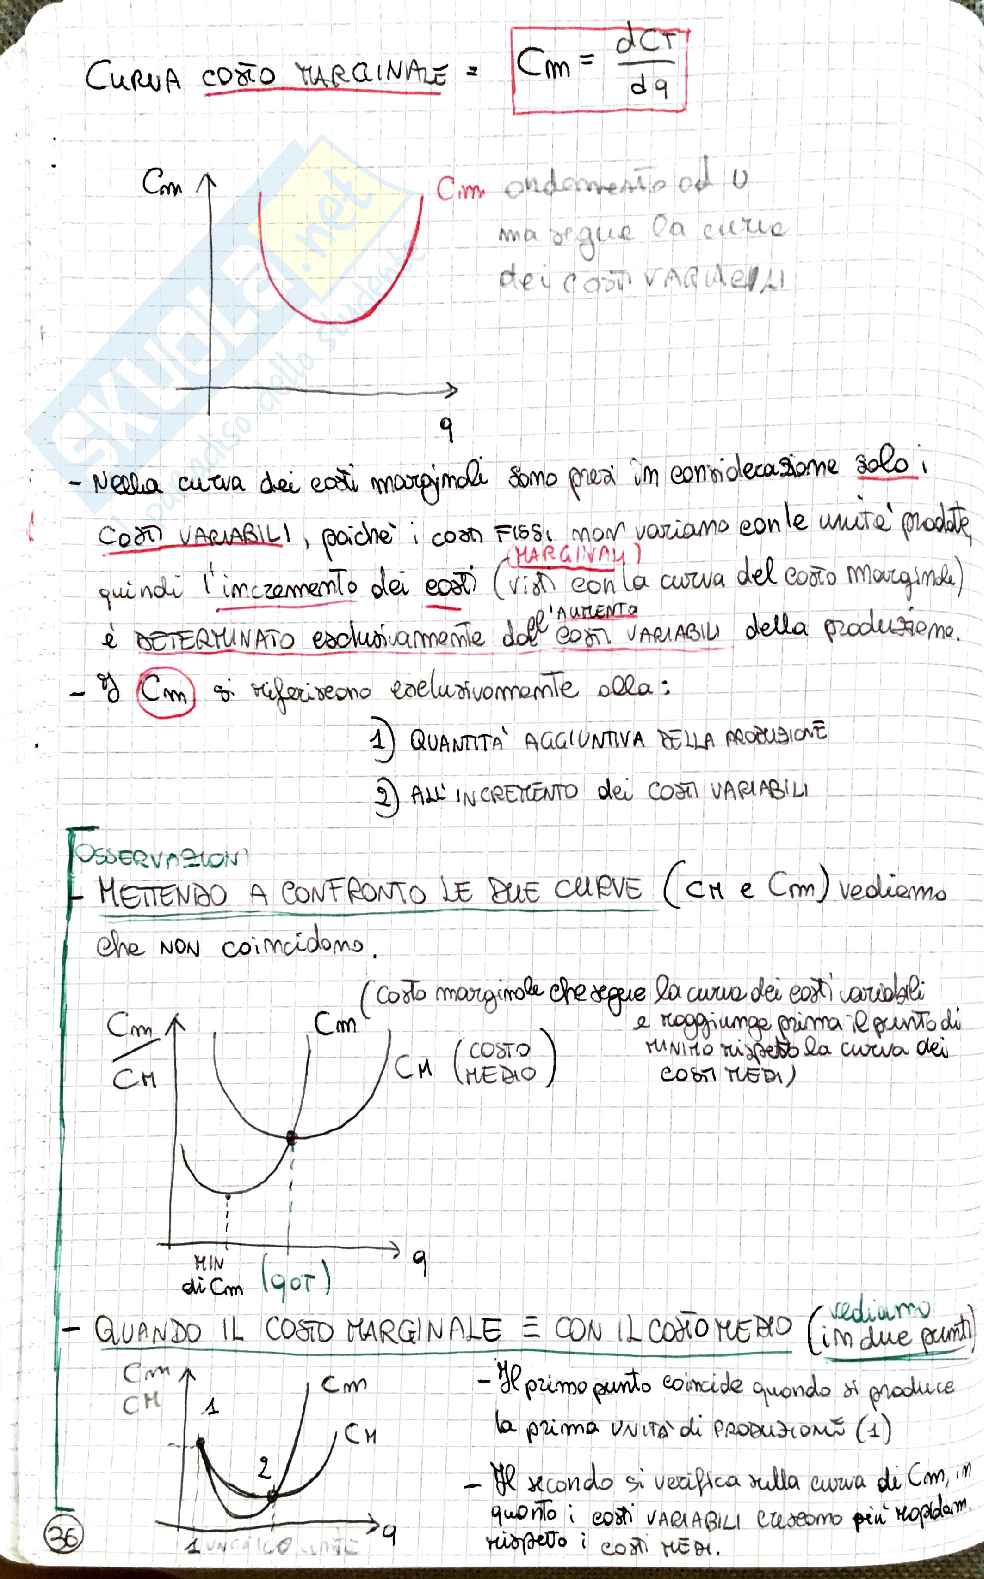 CURVA COSTO MARGINALE = Cm = dCT/dq
Cm
Cm andamento ad U
ma segue la curva
dei costi VARIABILI
q
SKUOLA.net
- Nella curva dei costi marginali sono presi in considerazione solo i
COSTI VARIABILI, poiché i costi FISSI non variano con le unità prodotte,
quindi l'incremento dei costi (MARGINALI) (visti con la curva del costo marginale)
è DETERMINATO esclusivamente dall'AUMENTO COSTI VARIABILI della produzione.
- I Cm si riferiscono esclusivamente alla:
1) QUANTITA' AGGIUNTIVA DELLA PRODUZIONE
2) ALL'INCREMENTO dei COSTI VARIABILI
OSSERVAZIONI
- METTENDO A CONFRONTO LE DUE CURVE (CM e Cm) vediamo
che NON coincidono.
(costo marginale che segue la curva dei costi variabili
e raggiunge prima il punto di
MINIMO rispetto la curva dei
COSTI MEDI)
Cm
CM
Cm
CM (COSTO MEDIO)
MIN
di Cm
(qOT)
q
- QUANDO IL COSTO MARGINALE = CON IL COSTO MEDIO (vediamo
in due punti)
Cm
CM
1
Cm
CM
2
q
1
- Il primo punto coincide quando si produce
la prima UNITÀ di PRODUZIONE (1)
- Il secondo si verifica sulla curva di Cm, in
quanto i costi VARIABILI crescono più rapidam.
rispetto i costi MEDI.
36